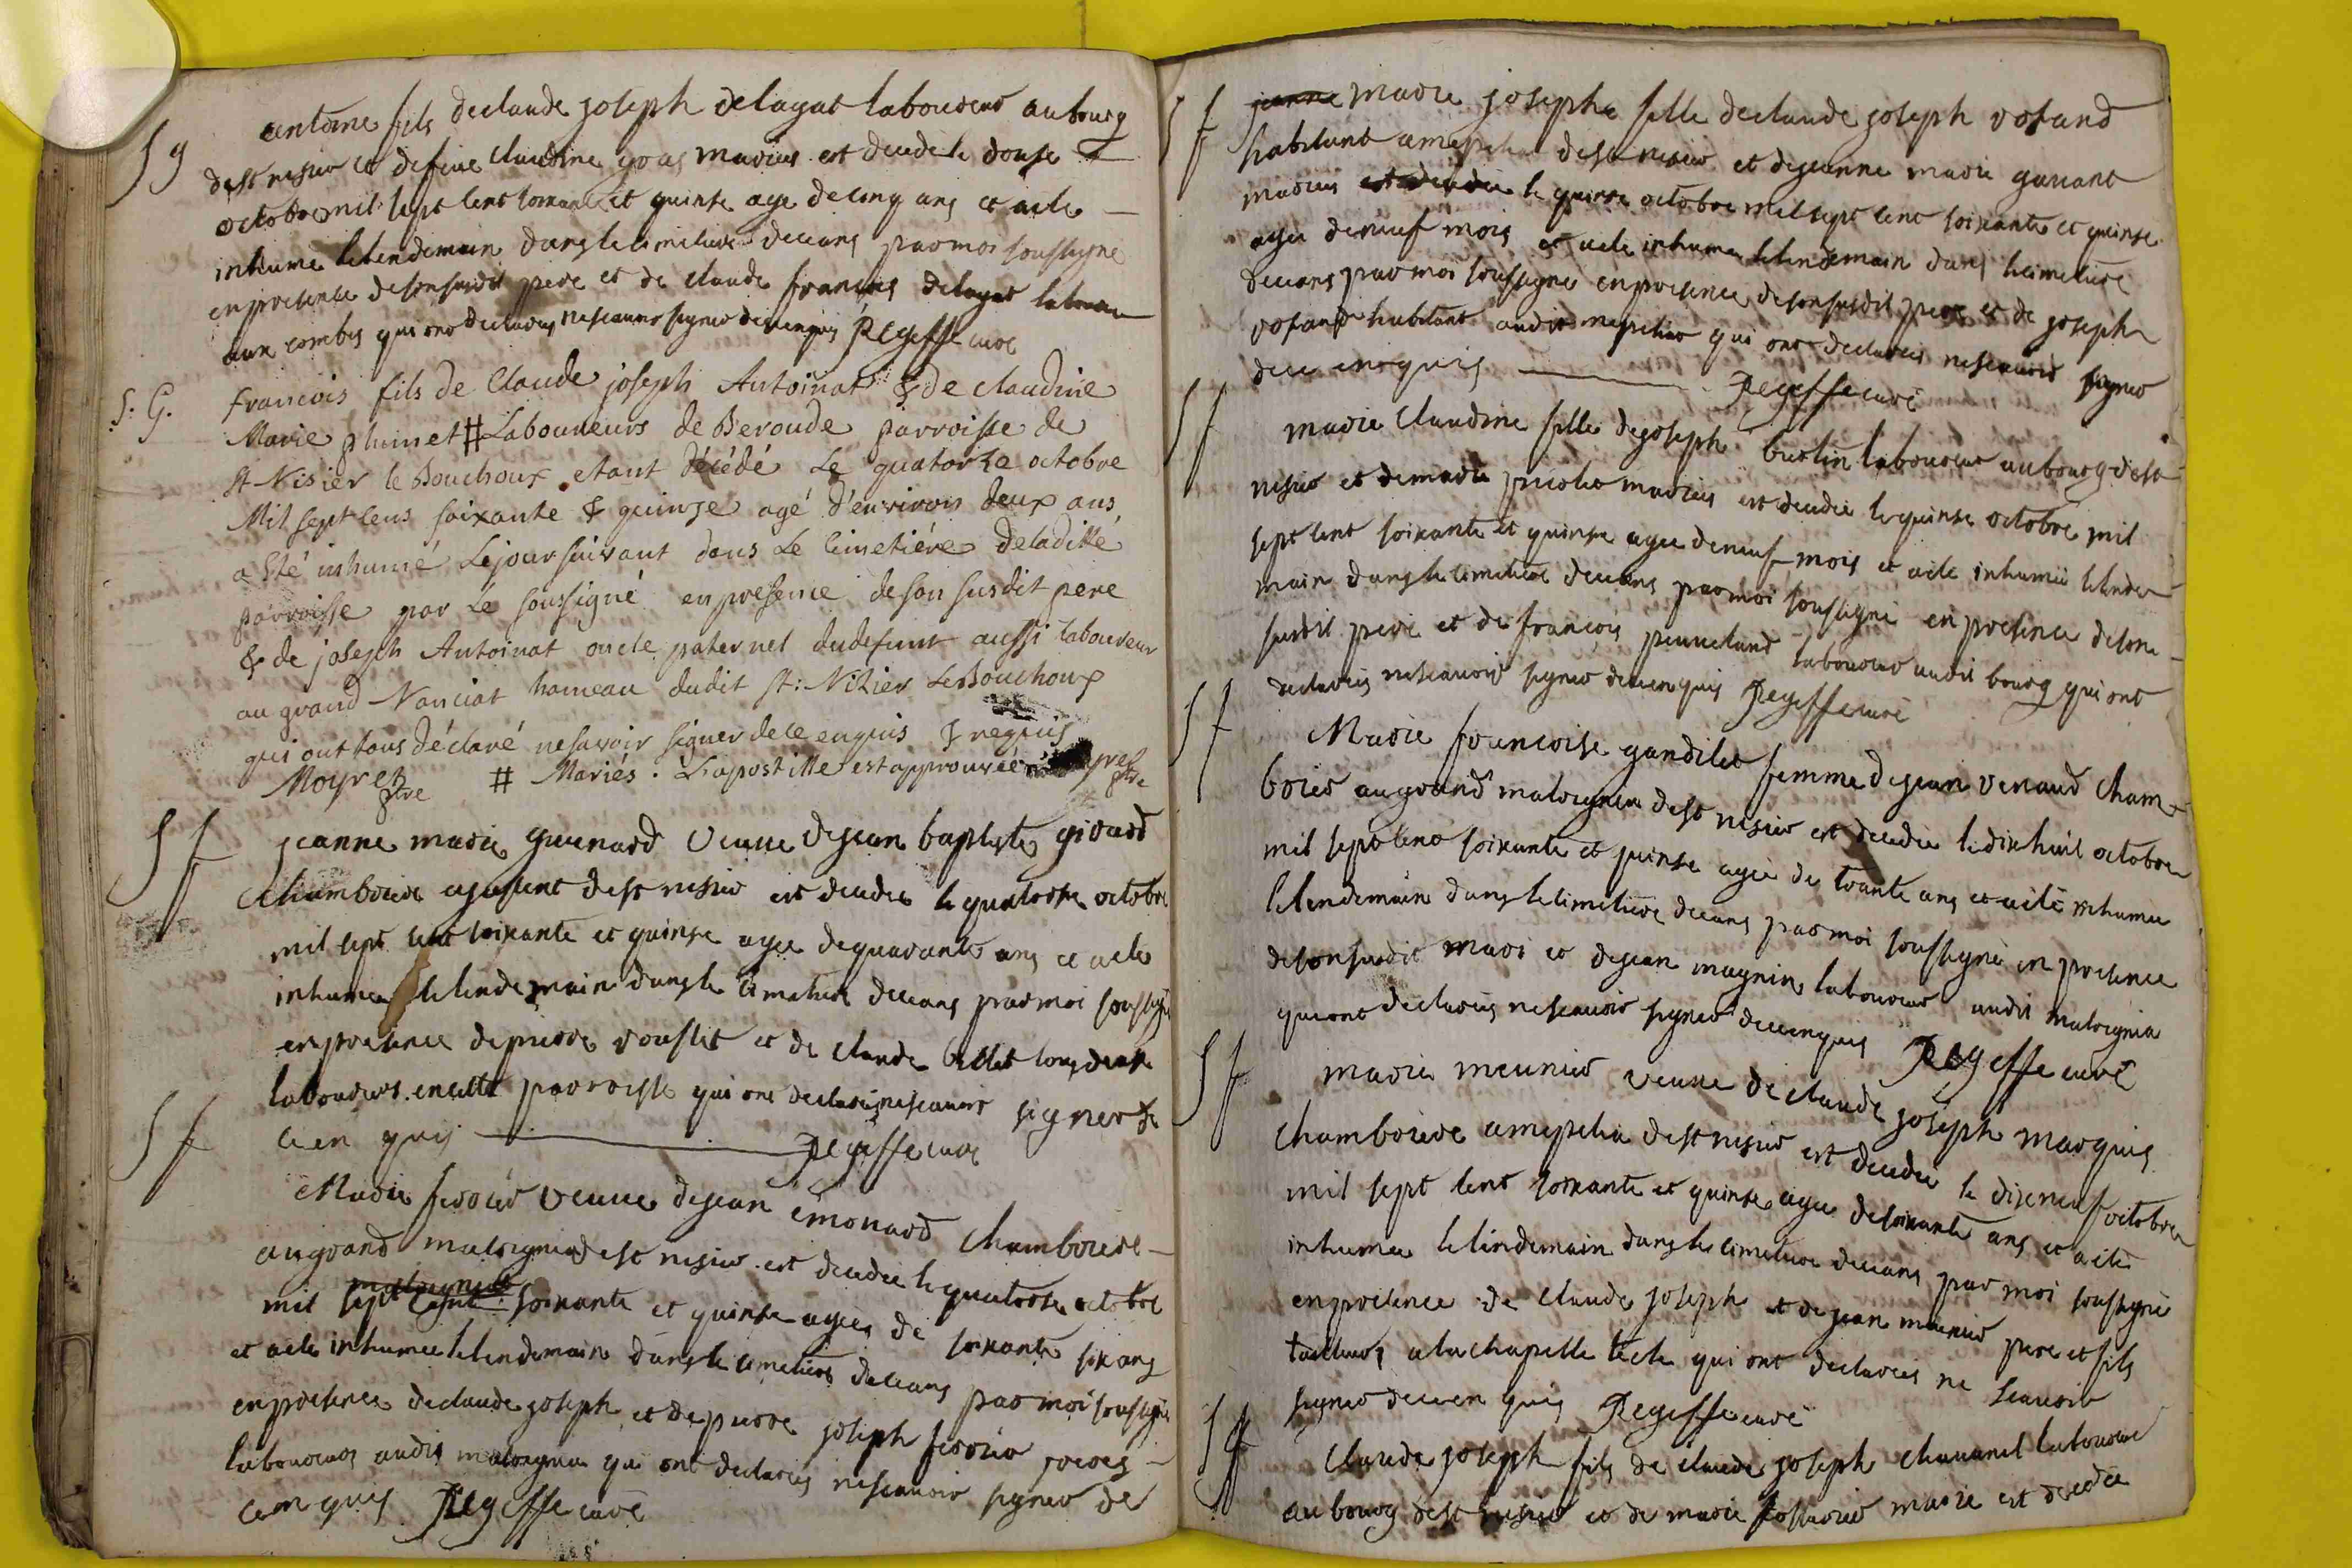 S g
antoine fils declaude joseph delagat laboureur au bourg
dest nisier et defeue claudine goas maries est decede le douse
octobre mil sept cent soixante et quinse age de cinq ans et aete
inhume lelendemain dans le cimetiere deceans par moi soussigne
en presence de son susdit pere et de claude francois delagat laboureur
aux combes qui ont declares nescauoir signer de ce enquis Regeffe curé
S. G.
francois fils de Claude joseph Antoinat & de claudine
Marie pluinet # Laboureurs de Beroude parroisse de
St Nisier le Bouchoux etant décédé Le quatorze octobre
Mil sept cens soixante & quinze agé d'environ deux ans
a été inhumé Lejour suivant dans Le Cimetiére deladitte
parroisse par Le soussigné en presence deson susdit pere
& de joseph Antoinat oncle paternel dudefunt aussi laboureur
au grand Nanciat hameau dudit St: Nizier LeBouchoux
qui ont tous déclaré nesavoir signer dece enquis & requis
Moyret ptre # Mariés. L'apostille est approuvée
S f
jeanne marie guenard veuue dejean baptiste girard
chamboiere dest nisier est decedee le quatorse octobre
mil sept cent soixante et quinse agee dequarante ans et aete
inhumee lelendemain dans le cimetiere deceans par moi soussigne
en presence depierre rouslet et de claude
laboureurs encette parroisse qui ont declares nescauoir signer de
ce en quis Regeffe curé
S f
Marie ferrier veuue dejean emonard chamboiere
augrand malorgnia dest nisier est decedee le quatorse octobre
mil sept cent soixante et quinse agee de soixante six ans
et aete inhumee lelendemain dans le cimetiere deceans par moi soussigne
en presence declaude joseph et de pierre joseph ferrier freres
laboureurs audit malorgnia qui ont declares nescauoir signer de
ce en quis Regeffe curé
S f
jeanne marie josephe fille declaude joseph rofand
habitant amepelia dest nisier et dejeanne marie gauant
maries est decedee le quinse octobre mil sept cent soixante et quinse
agee deneuf mois et aete inhumee lelendemain dans le cimetiere
deceans par moi soussigne en presence desonsusdit pere et de joseph
rofand habitant audit mepelia qui ont declares nescauoir signer
de ce enquis Regeffe curé
S f
marie claudine fille dejoseph burtin laboureur aubourg dest
nisier et demarie maries est decedee le quinse octobre mil
sept cent soixante et quinse agee deneuf mois et aete inhumée lelende
main dans le cimetiere deceans par moi soussigné en presence deson
susdit pere et de francois laboureur audit bourg qui ont
declares nescauoir signer de ce enquis Regeffe curé
S f
Marie francoise gandilet femme dejean venaud cham-
boier augrand malorgnia dest nisier est decedee le dixhuit octobre
mil sept cent soixante et quinse agée de trante ans et aeté inhumee
lelendemain dans le cimetiere deceans par moi soussigné en presence
desonsusdit mari et dejean magnin laboureur audit malorgnia
quiont declares nescauoir signer de ce enquis Regeffe curé
S f
marie meunier veuue de claude joseph marquis
chamboiere amepelia dest nisier est decedee le dix neuf octobre
mil sept cent soixante et quinse agee desoixante ans et aeté
inhumee lelendemain dans le cimetiere deceans par moi soussigné
en presence de claude joseph et de jean meunier pere et fils
tailleurs alachapelle tecle qui ont declares ne scauoir
signer de ce en quis Regeffe curé
S g
Claude joseph fils de claude joseph chauanel laboureur
au bourg dest nisier et de marie marie est decede